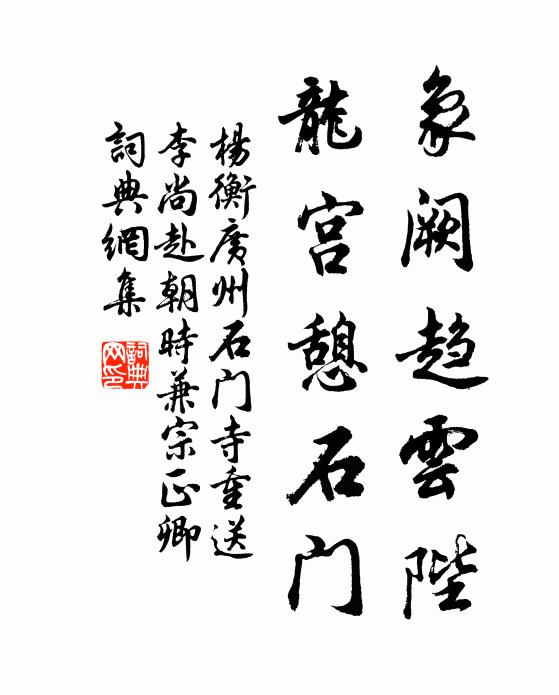 象阙趋雲陛
龍宫憩石门
楊衡廣州石门寺重送
李尚赴朝時兼宗正卿
詞典網集
詞典
网印